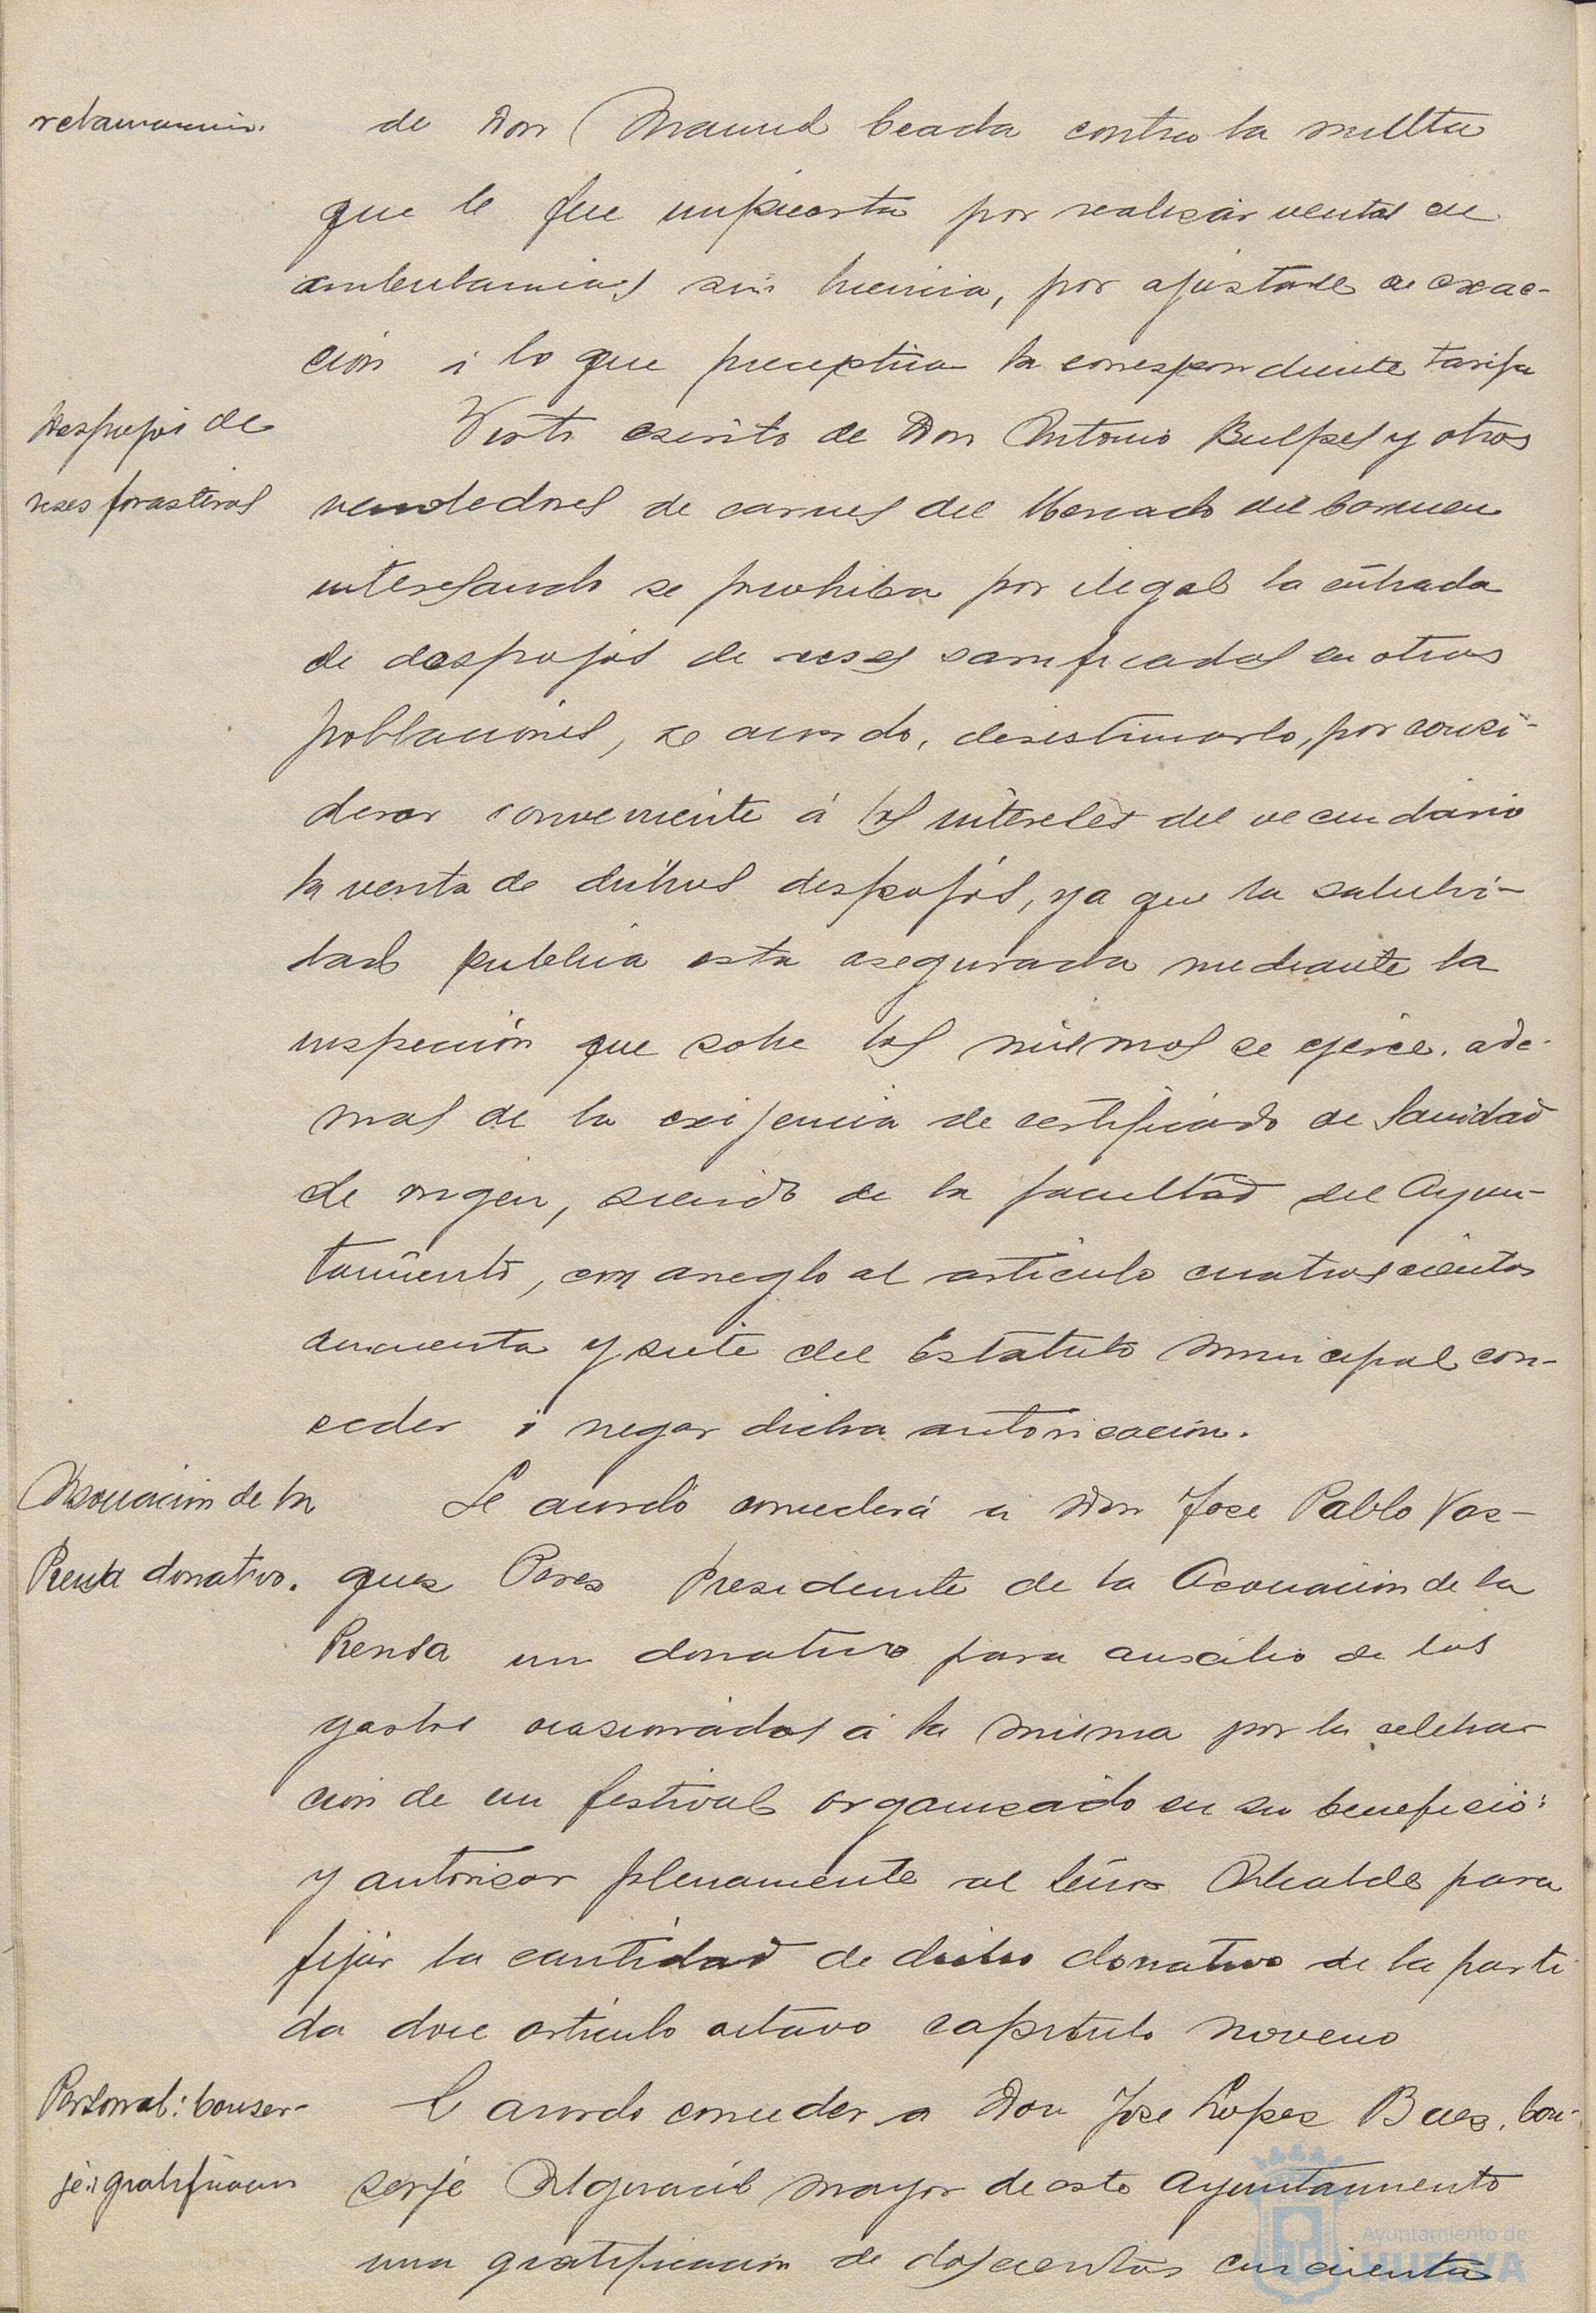 reclamacion.
de Don Manuel Ceada contra la multa
que le fue impuesta por realizar ventas en
ambulancias sin licencia, por ajustarse la exac-
ción á lo que preceptua la correspondiente tarifa
Despojos de
reses forasteras
Visto escrito de Don Antonio Bulpes y otros
vendedores de carnes del Mercado del Carmen
interesando se prohiba por ilegal la entrada
de despojos de reses sacrificadas en otras
poblaciones, se acordo, desestimarlo, por consi-
derar conveniente á los intereses del vecindario
la venta de dichos despojos, ya que la salubri-
dad publica esta asegurada mediante la
inspección que sobre los mismos se ejerce, ade-
mas de la exijencia de certificado de Sanidad
de origen, siendo de la facultad del Ayun-
tamiento, con arreglo al articulo cuatroscientos
cincuenta y siete del Estatuto Municipal con-
ceder ó negar dicha autorización.
Asociacion de la
Prensa donativo.
Se acordó conceder á Don Jose Pablo Vaz-
quez Perez Presidente de la Asociacion de la
Prensa un donativo para auxilio de los
gastos ocasionados á la misma por la celebra
ción de un festival organizado en su beneficio:
y autorizar plenamente al Señor Alcalde para
fijar la cantidad de dicho donativo de la parti
da doce articulo octavo capitulo noveno
Personal: Conser-
je: gratificacion
Se acordo conceder a Don Jose Lopez Baez, Con-
serje Alguacil mayor de este Ayuntamiento
una gratificacion de doscientas cincuenta
Ayuntamiento de
HUELVA